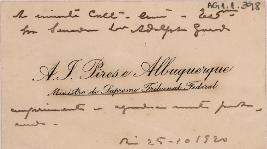 AG.1.1.398
Senador Dr. Adolpho Gordo
A. J. Pires e Albuquerque
Ministro do Supremo Tribunal Federal
cumprimenta e agradece muito
Rio 25-10-1920